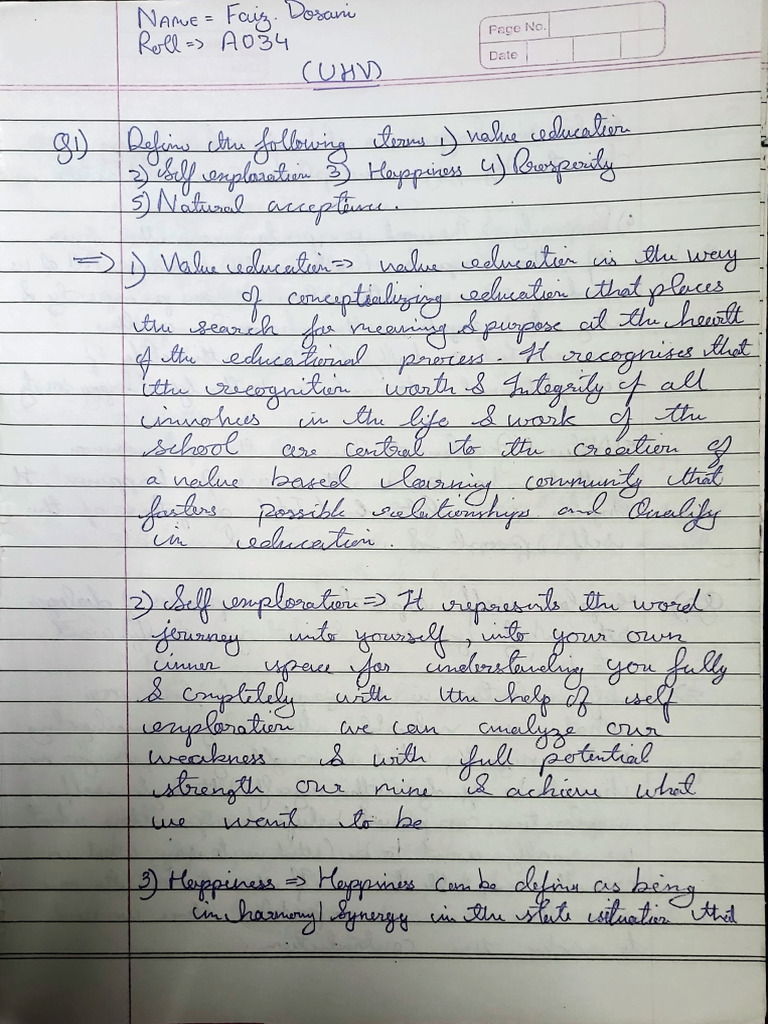 NAME = Faiz. Dosani
Roll => A034
Page No.
Date
(UHV)
Q1) Define the following terms 1) value education
2) Self exploration 3) Happiness 4) Prosperity
5) Natural acceptance.
=> 1) Value education => value education is the way
of conceptializing education that places
the search for meaning & purpose at the heart
of the educational process. It recognises that
the recognition worth & Integrity of all
involves in the life & work of the
school are central to the creation of
a value based learning community that
fasters possible relationships and Quality
in education.
2) Self exploration => It represents the word
journey into yourself, into your own
inner space for understanding you fully
& cmpletely with the help of self
exploration we can analyze our
weakness & with full potential
strength our mine & achieve what
we want to be
3) Happiness => Happiness can be define as being
in harmony/Synergy in the state situation that